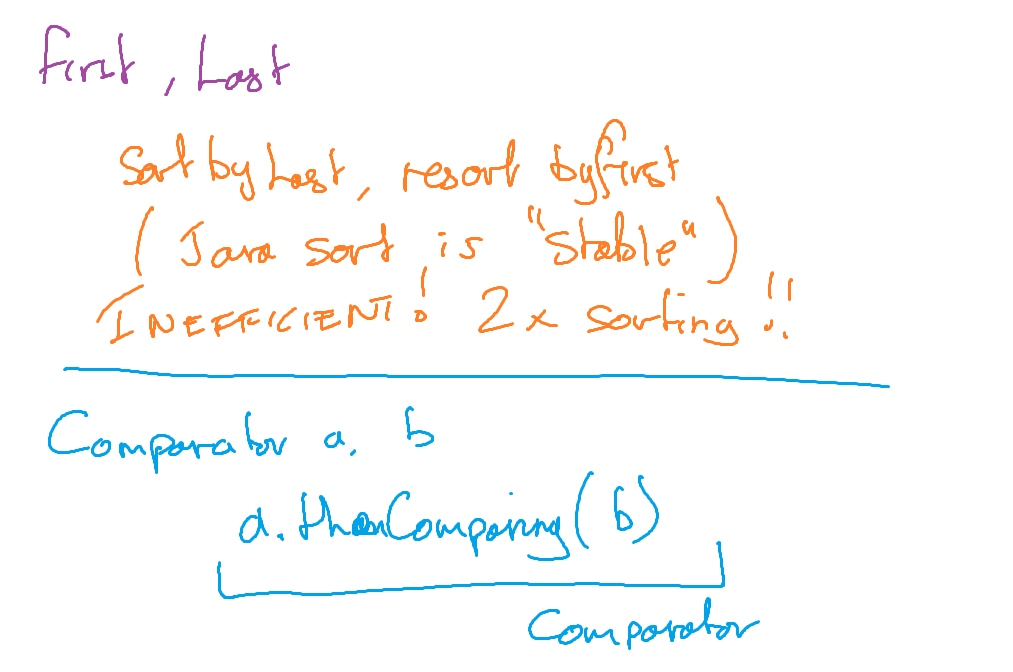 First, Last
Sort by Last, resort by first
(Java sort is "stable")
INEFFICIENT! 2x sorting!!
Comparator a, b
a.thenComparing(b)
Comparator